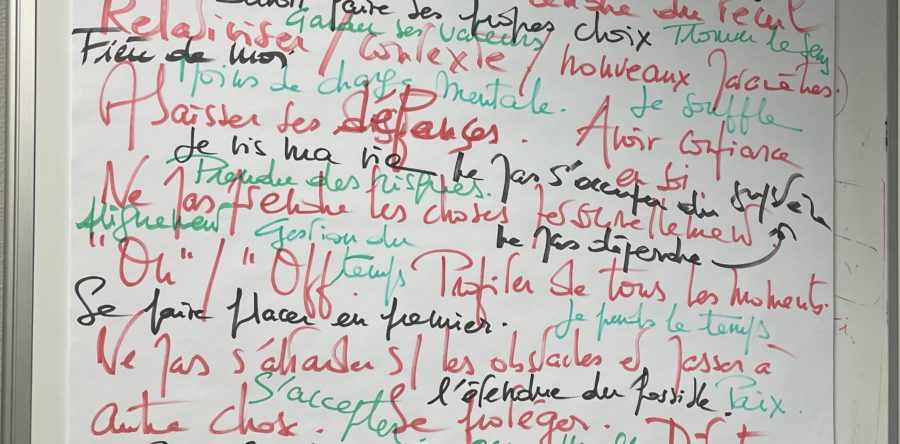 faire ses propres choix
Relativiser / Contexte / nouveaux paramètres.
Garder ses valeurs
Trouver le sens
Fière de moi
Moins de charge mentale.
Je souffle
Abaisser ses défenses.
Avoir confiance en soi
Je vis ma vie
Ne pas s'occuper du
Prendre des risques.
Ne pas prendre les choses personnellement
Alignement
Gestion du temps
Ne pas dépendre
"On" / "Off"
Profiter de tous les moments.
Se faire placer en premier.
Je prends le temps
Ne pas s'attarder s/ les obstacles et passer à autre chose.
S'accepter
l'étendue du possible.
Paix.
Se protéger.